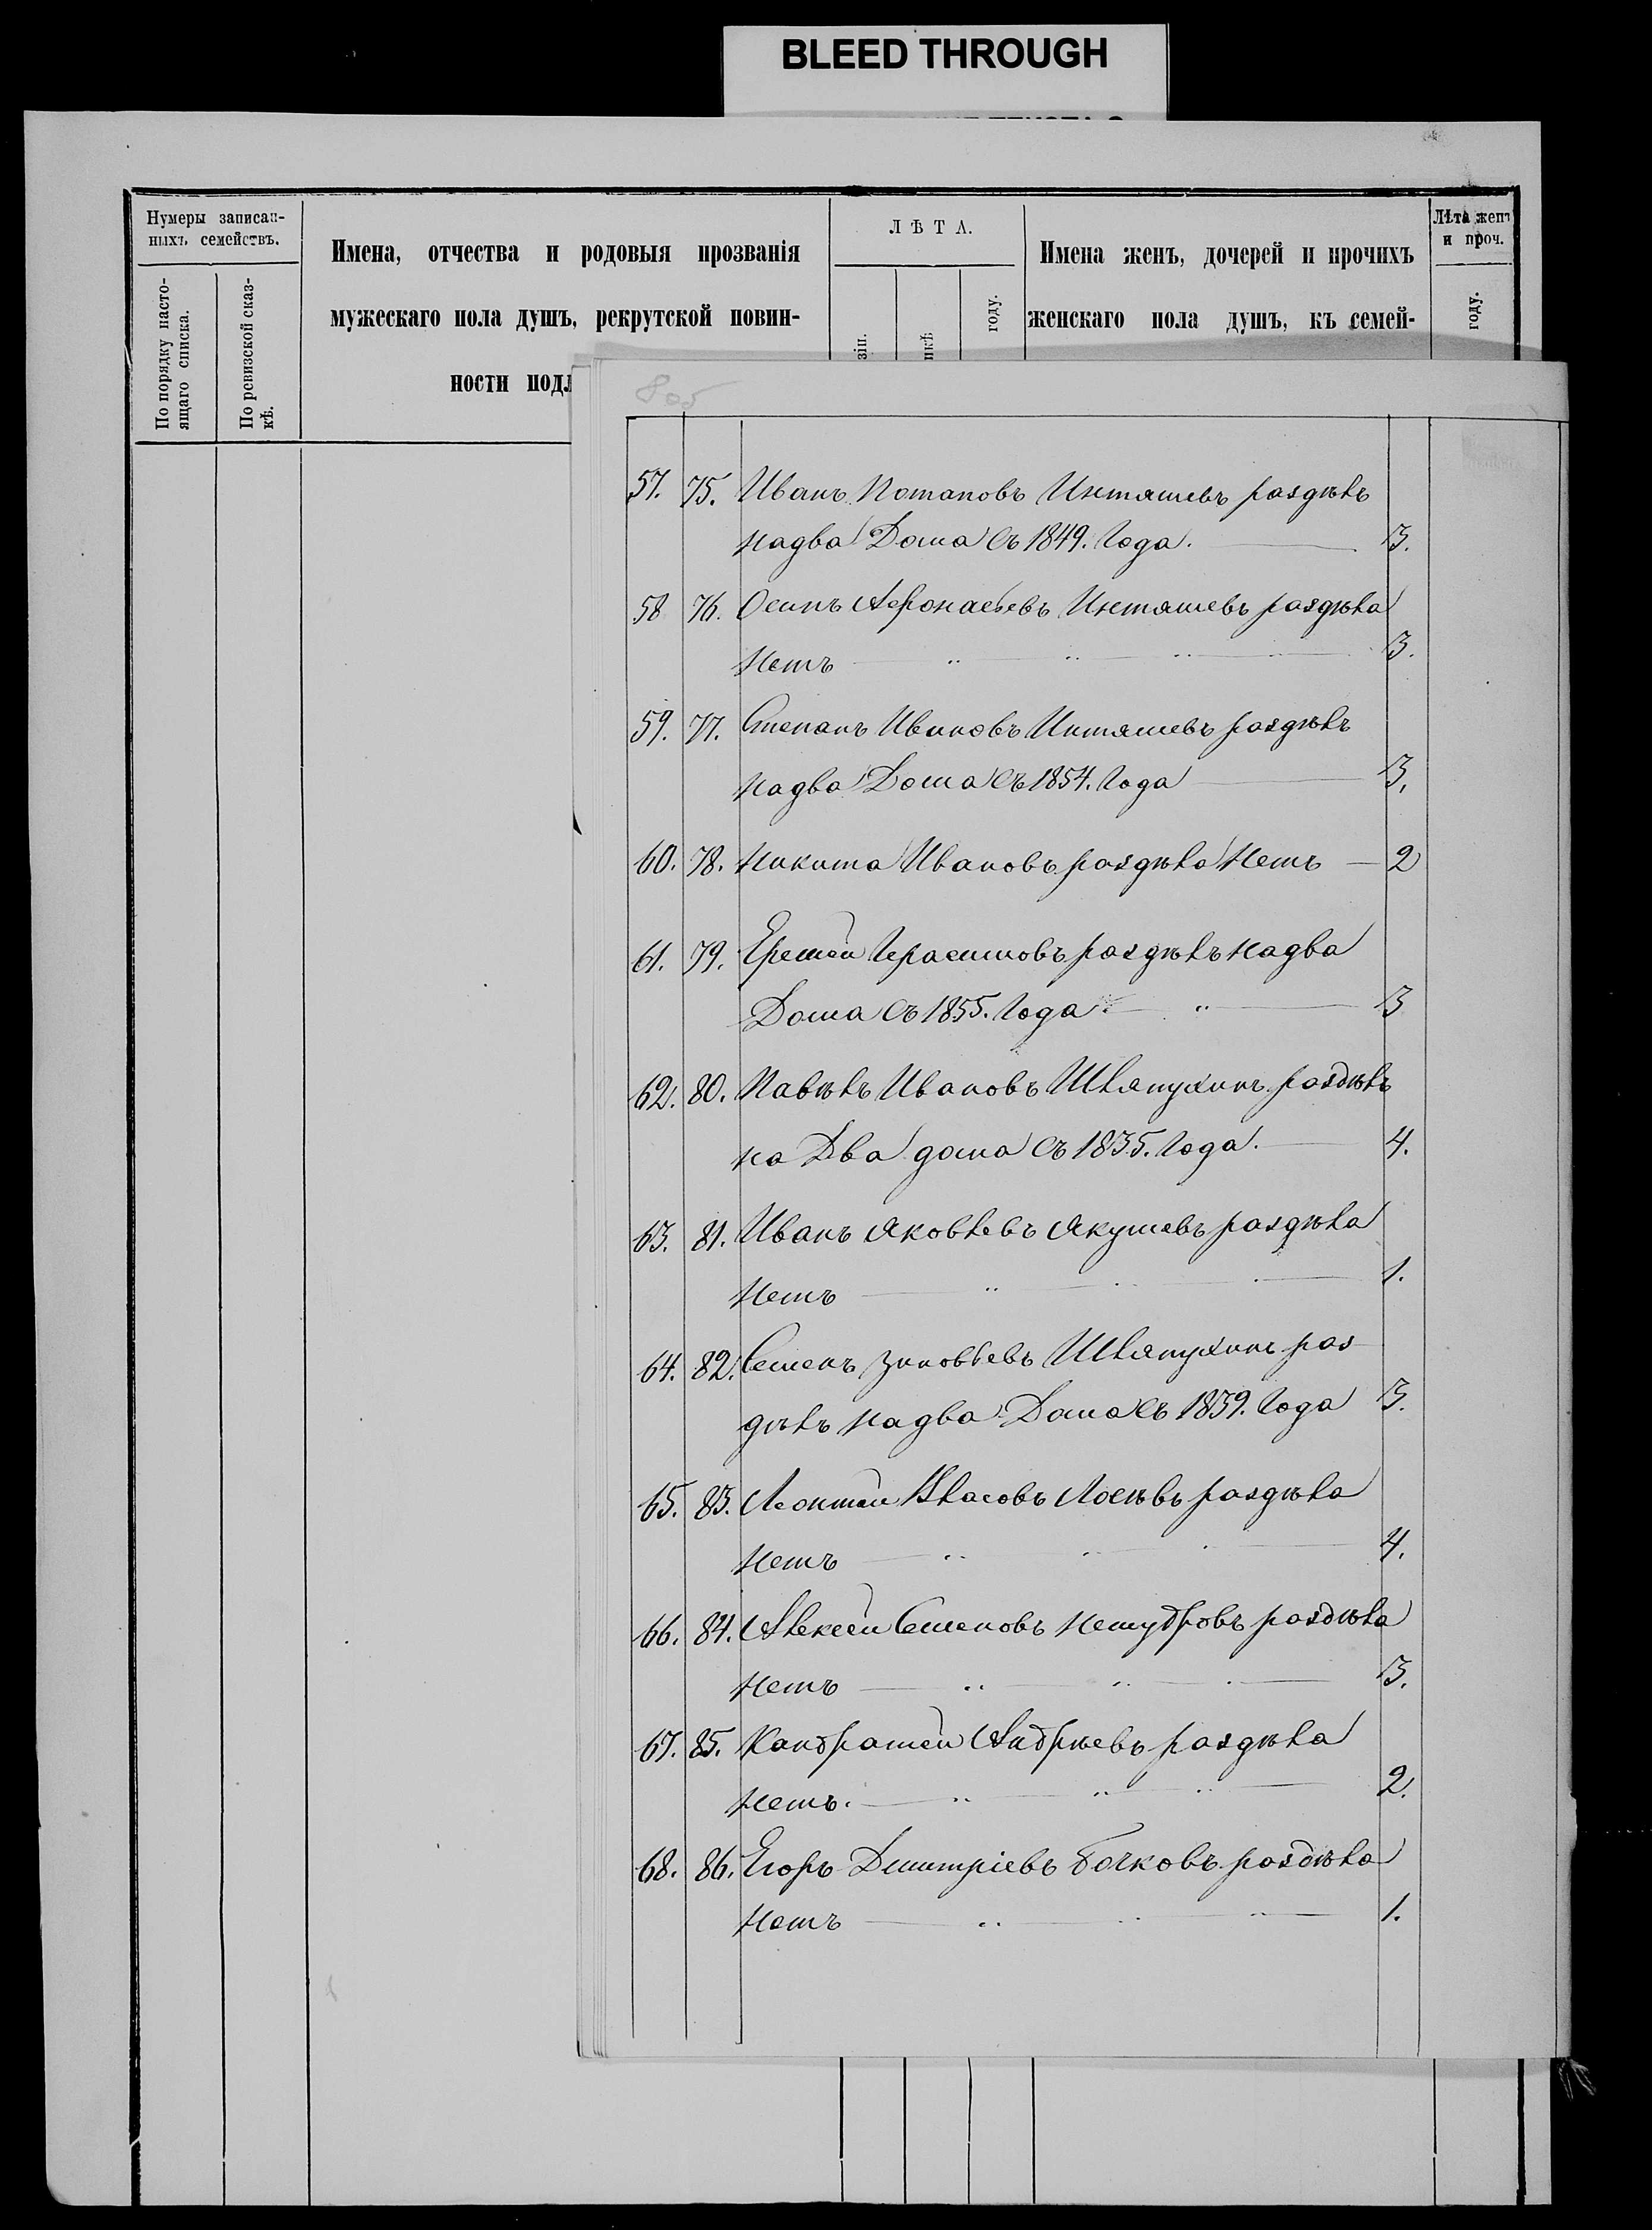 BLEED THROUGH
Нумеры записан-
ныхъ семействъ.
По порядку насто-
ящаго списка.
По ревизской сказ-
кѣ.
Имена, отчества и родовыя прозванія
мужескаго пола душъ, рекрутской повин-
ности подл
ЛѢТА.
зіи.
году.
Имена женъ, дочерей и прочихъ
женскаго пола душъ, къ семей-
Лѣта женъ
и проч.
году.
805
57. 75. Иванъ Потаповъ Интяшевъ раздѣлъ
надва Дома съ 1849. Года. 3.
58 76. Осипъ Афонасьевъ Интяшевъ раздѣла
Нетъ 3.
59. 77. Степанъ Ивановъ Интяшевъ раздѣлъ
надва Дома съ 1854. Года 3.
60. 78. Никита Ивановъ раздѣла Нетъ 2
61. 79. Еремей Герасимовъ раздѣлъ надва
Дома съ 1855. Года 3
62. 80. Павѣлъ Ивановъ Шляпухинъ раздѣлъ
на Два дома съ 1835. Года. 4.
63. 81. Иванъ Яковлевъ Якушевъ раздѣла
Нетъ 1.
64. 82. Семенъ Зиновьевъ Шляпухинъ раз-
дѣлъ надва Дома съ 1839. Года 3.
65. 83. Леонтей Власовъ Лосѣвъ раздѣла
Нетъ 4.
66. 84. Алексей Семеновъ Немудровъ раздѣла
Нетъ 3.
67. 85. Кандратей Андрѣевъ раздѣла
Нетъ. 2.
68. 86. Егоръ Дмитріевъ Бочковъ раздѣла
Нетъ 1.